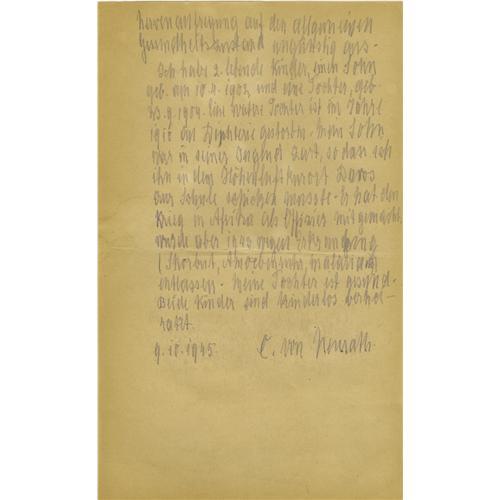 Nervenanspannung auf den allgemeinen
Gesundheitszustand ungünstig aus.
Ich habe 2 lebende Kinder, einen Sohn
geb. am 10.4.1902 und eine Tochter, geb.
9.1904. Eine weitere Tochter ist im Jahre
an Diphterie gestorben. Mein Sohn
war in seiner Jugend zart, so dass ich
ihn in den Höhenluftkurort Davos
zur Schule schicken musste. Er hat den
Krieg in Afrika als Offizier mitgemacht,
wurde aber 1943 wegen Erkrankung
(Skorbut, Amoebenruhr, Malaria)
entlassen. Meine Tochter ist gesund.
Beide Kinder sind kinderlos verhei-
ratet.
9.10.1945. C. von Neurath.